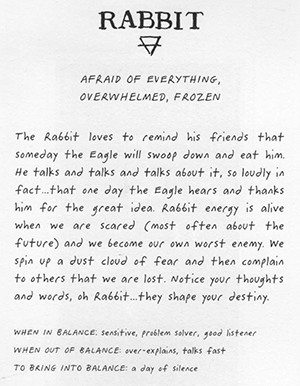 RABBIT
AFRAID OF EVERYTHING,
OVERWHELMED, FROZEN
The Rabbit loves to remind his friends that
someday the Eagle will swoop down and eat him.
He talks and talks and talks about it, so loudly in
fact...that one day the Eagle hears and thanks
him for the great idea. Rabbit energy is alive
when we are scared (most often about the
future) and we become our own worst enemy. We
spin up a dust cloud of fear and then complain
to others that we are lost. Notice your thoughts
and words, oh Rabbit...they shape your destiny.
WHEN IN BALANCE: sensitive, problem solver, good listener
WHEN OUT OF BALANCE: over-explains, talks fast
TO BRING INTO BALANCE: a day of silence